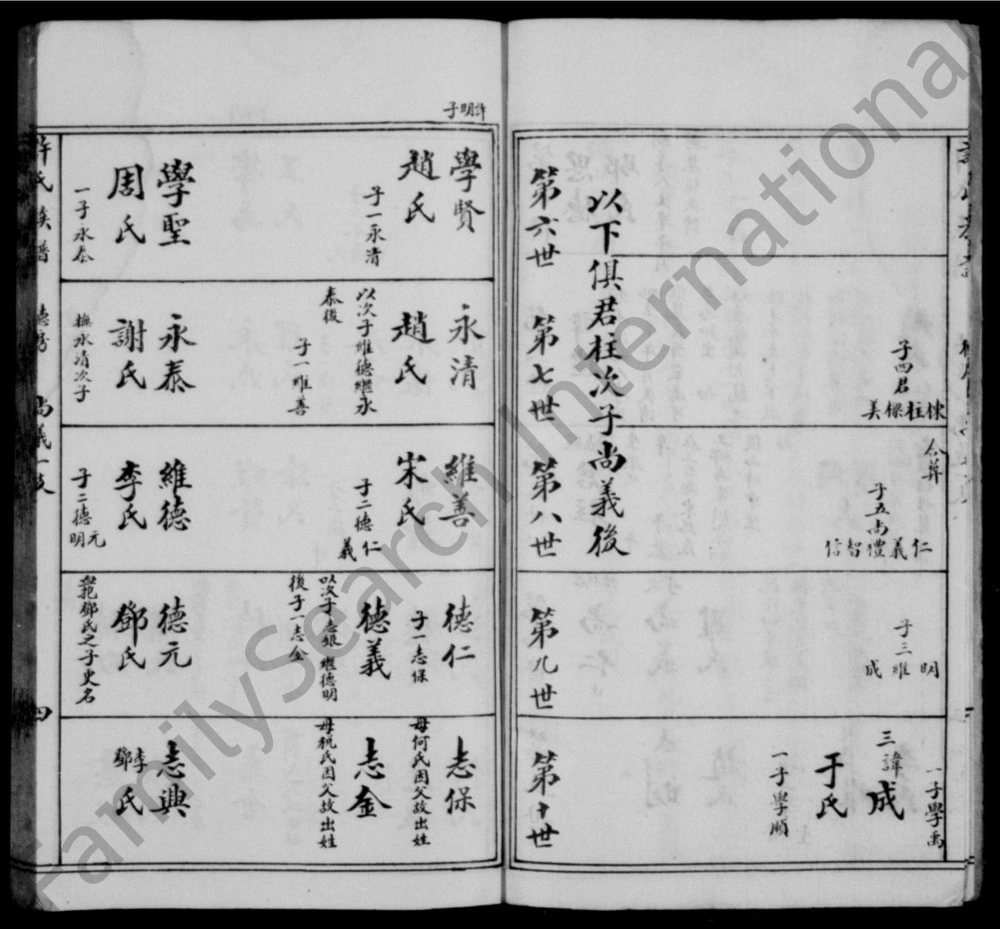 子四君
棟柱樑美
合葬
子五尚
仁義禮智信
子三
明唯成
一子學禹
三諱成
于氏
一子學順
以下俱君柱次子尚義後
第六世
第七世
第八世
第九世
第十世
許明子
學賢
趙氏
子一永清
學聖
周氏
一子永泰
永清
趙氏
以次子維德繼永
泰後
子一維善
永泰
謝氏
撫永清次子
維善
宋氏
子二德仁義
維德
李氏
子二德元明
德仁
子一志保
德義
以次子志銀繼德明
後子一志金
德元
鄧氏
鄧氏之子更名
志保
母何氏因父故出姓
志金
母氏因父故出姓
志興
李鄧氏
許氏族譜
尚義一支
四
FamilySearch International